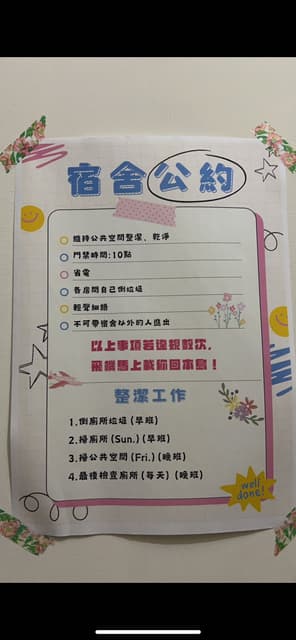 宿舍公約
維持公共空間整潔、乾淨
門禁時間:10點
省電
各房間自己倒垃圾
輕聲細語
不可帶宿舍以外的人進出
以上事項若違規數次,
飛機馬上載你回本島!
整潔工作
1.倒廁所垃圾 (早班)
2.掃廁所 (Sun.) (早班)
3.掃公共空間 (Fri.) (晚班)
4.最後檢查廁所 (每天) (晚班)
well
done!